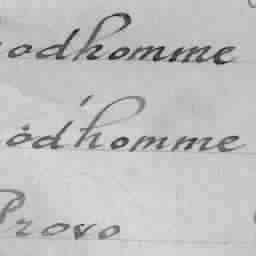 odhomme
ód'homme
Provo